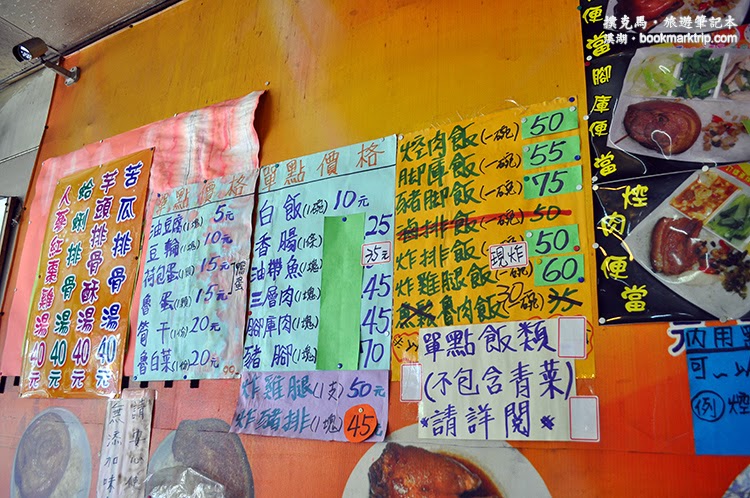 撲克馬・旅遊筆記本
璞湖・bookmarktrip.com
苦瓜排骨湯40元
芋頭排骨酥湯40元
蛤蜊排骨湯40元
人蔘紅棗雞湯40元
單點價格
油豆腐(1塊) 5元
豆輪(1塊) 10元
荷包蛋(1顆) 15元
魯蛋(1顆) 15元
筒干(1份) 20元
魯白菜(1份) 20元
單點價格
白飯(1碗) 10元
香腸(1條) 25
35元
油魚(1塊)
三層肉(1塊) 45
腳庫肉(1塊) 45
豬腳(1塊) 70
炸雞腿(1支) 50元
炸豬排(1塊) 45元
焢肉飯(一碗) 50
腳庫飯(一碗) 55
豬腳飯(一碗) 75
滷排飯(一碗) 50
炸排飯(一碗) 50
現炸
炸雞腿飯(一碗) 60
魯肉飯 30元
單點飯類
(不包含青菜)
*請詳閱*
便當
腳庫便當
焢肉便當
內用
可一
例
無添加味